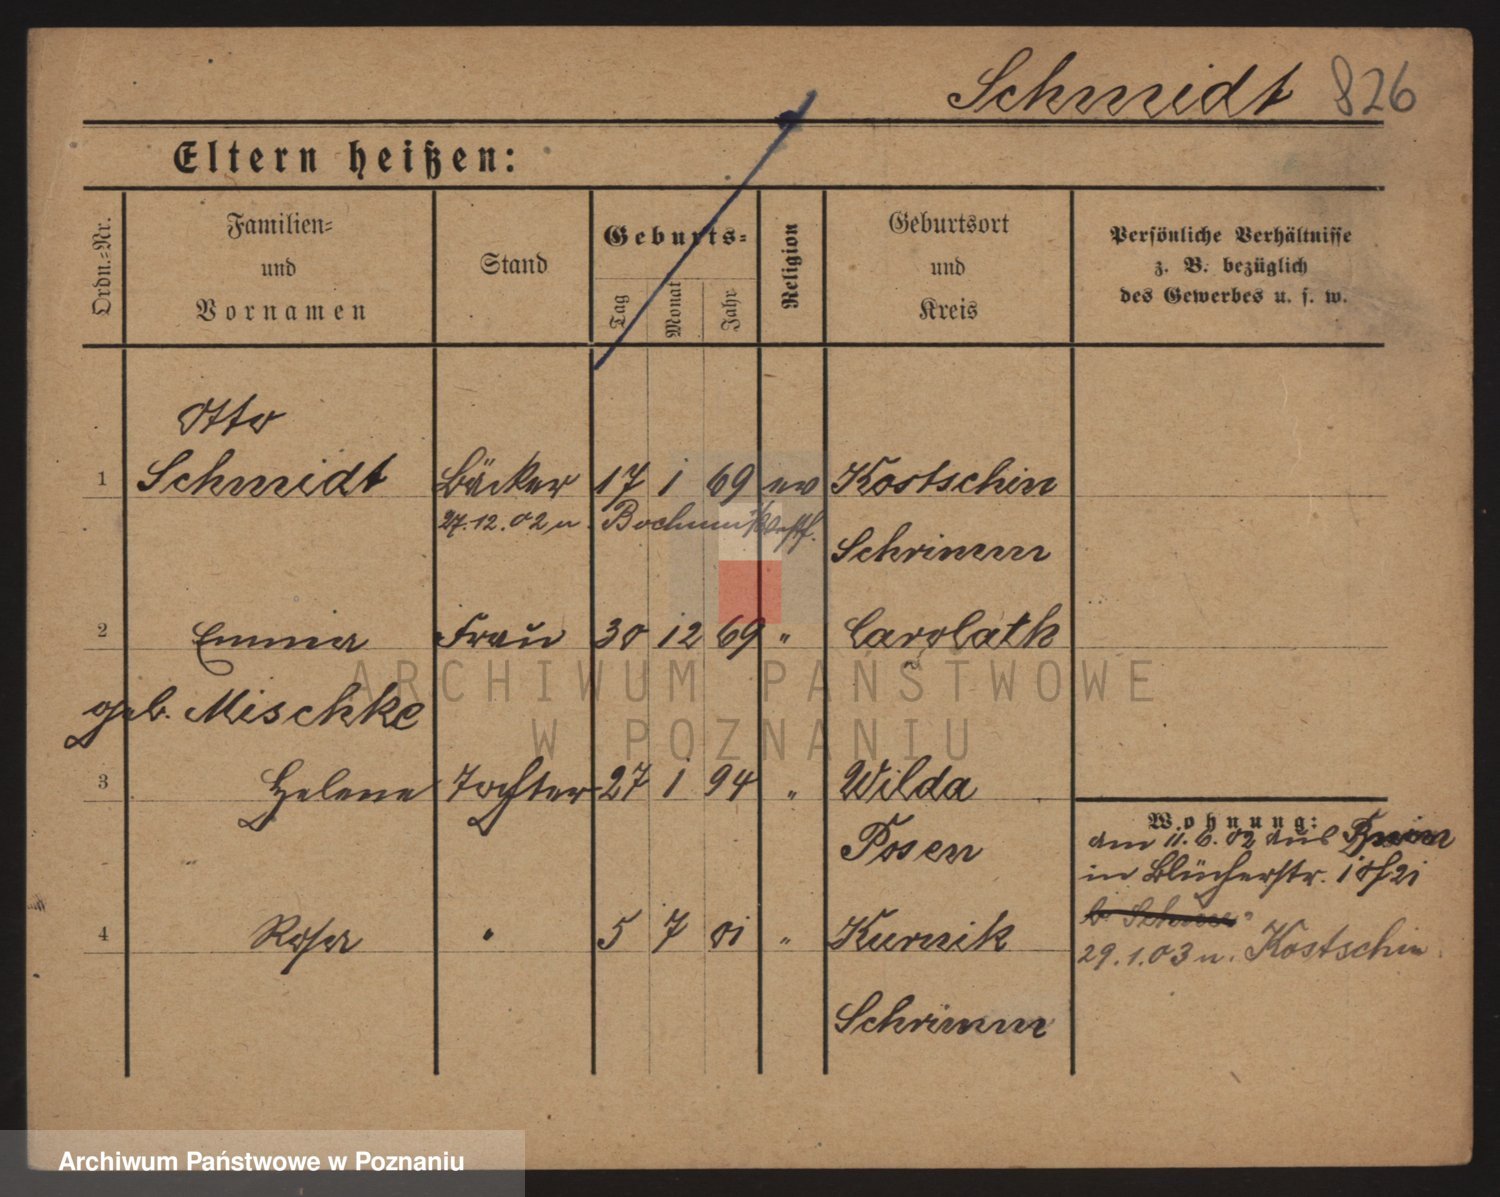 Schmidt 826
Eltern heißen:
Ordn.=Nr.
Familien=
und
Vornamen
Stand
Geburts=
Tag
Monat
Jahr
Religion
Geburtsort
und
Kreis
Persönliche Verhältnisse
z. B. bezüglich
des Gewerbes u. s. w.
Otto
1 Schmidt Bäcker 17 1 69 ev Kostschin
27.12.02 n. Bochum i/Westf.
Schrimm
2 Emma Frau 30 12 69 " Carolath
geb. Mischke
3 Helene Tochter 27 1 94 " Wilda
Posen
Wohnung:
am 11.6.02 aus
in Blücherstr.
4 Rosa " 5 7 01 " Kurnik
29.1.03 n. Kostschin
Schrimm
ARCHIWUM PAŃSTWOWE
W POZNANIU
Archiwum Państwowe w Poznaniu